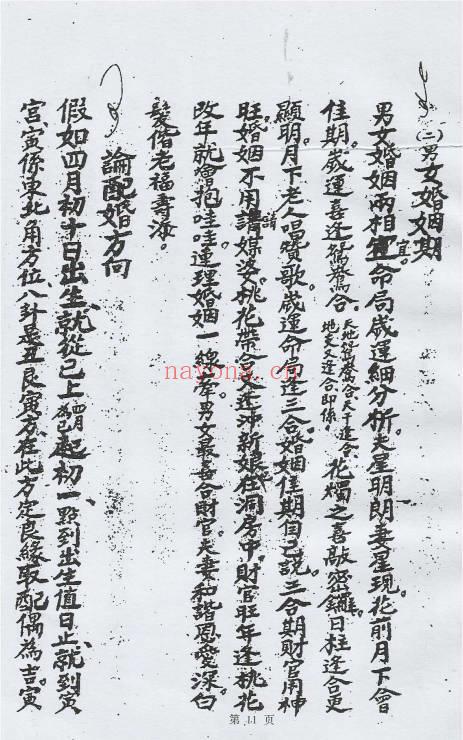 (二)男女婚姻期
男女婚姻兩相宜命局歲運細分析。夫星明朗妻星現。花前月下會
佳期。歲運喜逢鴛鴦合。天地鴛鴦合天干逢合地支又逢合即係。花燭之喜敲密鑼。日柱逢合更
顯明。月下老人唱讚歌。歲運命局逢三合婚姻佳期自己說。三合期財官用神
旺。婚姻不用請媒婆。桃花榮合又逢沖新娘在洞房中。財官旺年逢桃花
改年就會抱哇哇。連理婚姻一線牽。男女最喜合財官夫妻和諧恩愛深白
髮偕老福壽海。
論配婚方向
假如四月初十日出生、就從巳上四月為巳起初一、點到出生值日止、就到寅
宮、寅係東北角方位、八卦是丑艮寅方、在此方定良緣取配偶為吉。寅
第 11 页
nayona.cn